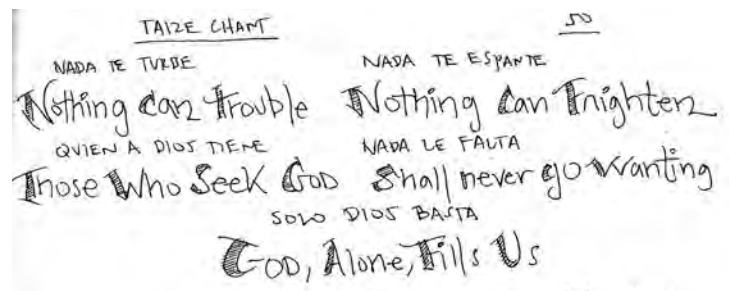 TAIZE CHANT 50
NADA TE TURBE NADA TE ESPANTE
Nothing Can Trouble Nothing Can Frighten
QUIEN A DIOS TIENE NADA LE FALTA
Those Who Seek GOD Shall never go Wanting
SOLO DIOS BASTA
GOD, Alone, Fills Us